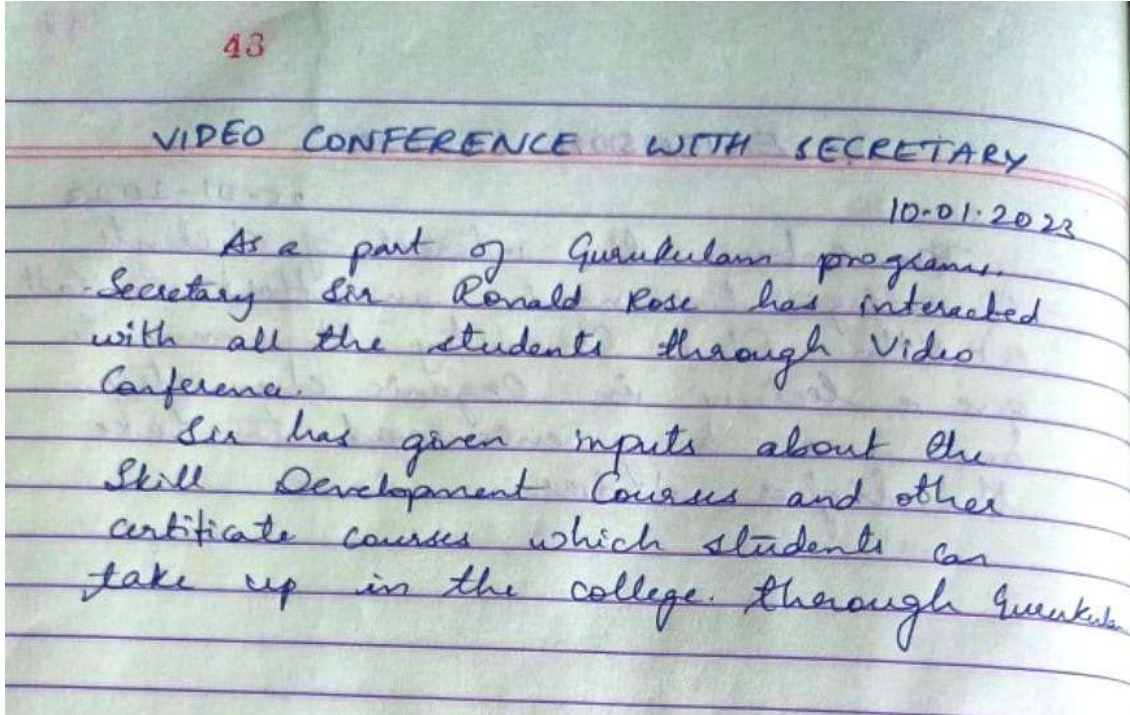 43
VIDEO CONFERENCE WITH SECRETARY
10-01-2023
As a part of Gurukulam program.
Secretary Sir Ronald Rose has interacted
with all the students through Video
Conference.
Sir has given inputs about the
Skill Development Courses and other
certificate courses which students can
take up in the college. thorough Gurukulam